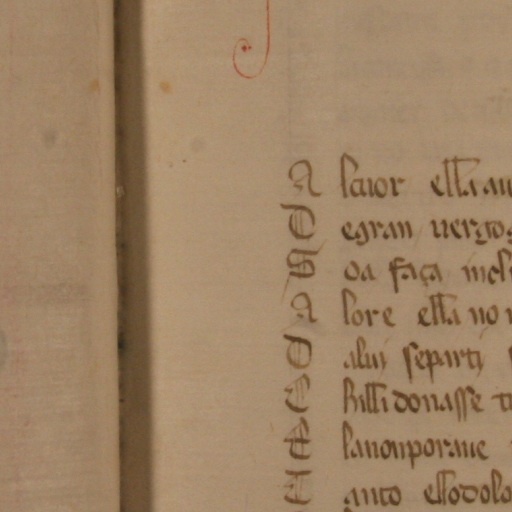 A lcuor ella
D egran uergog
S oa faça
A lore ella no
D aluj separtj
E billi donasse
E lanonporaue
E anto ellodolo